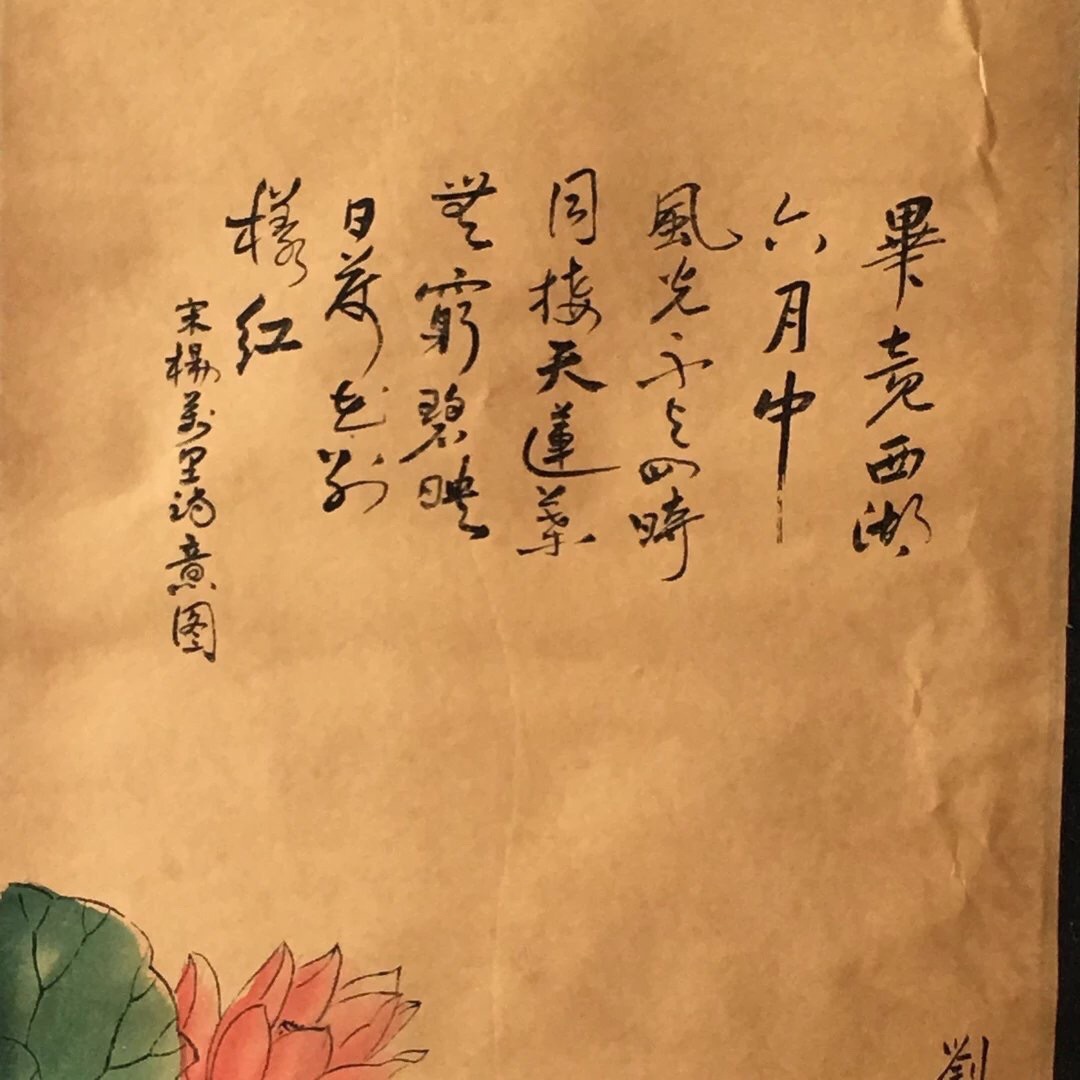 畢竟西湖
六月中
風光不与四時
同接天蓮葉
無窮碧映
日荷花別
樣红
宋楊萬里詩意图
劉